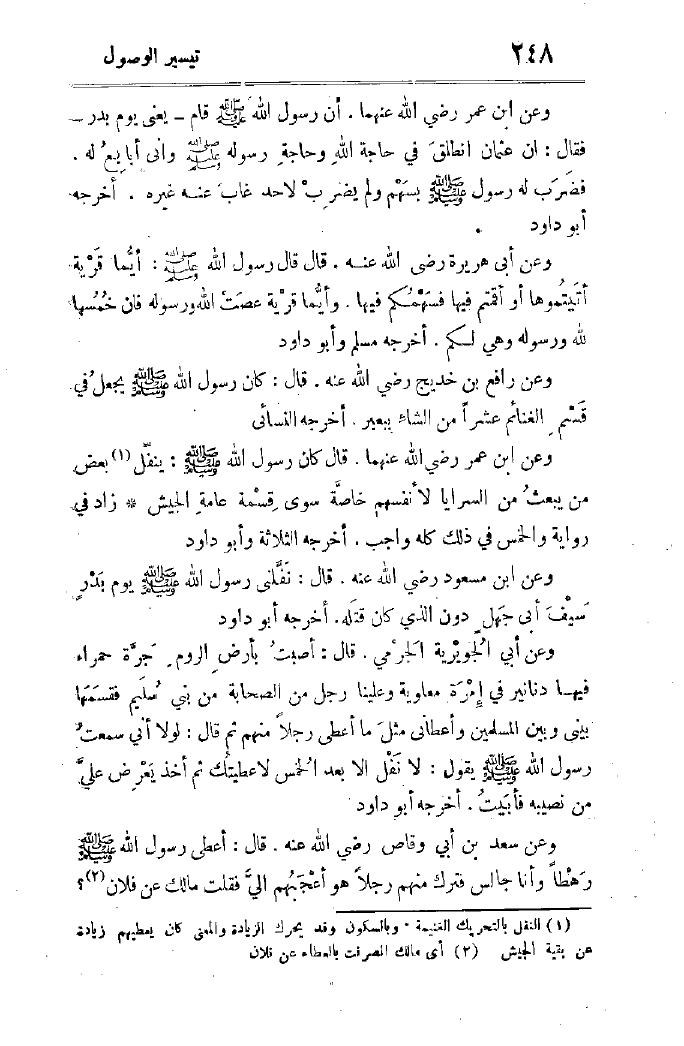 ٢٤٨ تيسير الوصول
وعن ابن عمر رضي الله عنهما . أن رسول الله ﷺ قام – يعنى يوم بدر –
فقال : ان عثمان انطلقَ في حاجة اللهِ وحاجةِ رسوله ﷺ وانى أبايعُ له .
فضرَب له رسول ﷺ بسَهْم ولم يضربْ لاحد غابَ عنه غيره . أخرجه
أبو داود
وعن أبى هريرة رضى الله عنه . قال قال رسول الله ﷺ : أيُّما قَرْية
أتيتُموها أو أقمتم فيها فسَهْمُكم فيها . وأيُّما قرية عصتْ الله ورسوله فان خُمُسها
لله ورسوله وهي لكم . أخرجه مسلم وأبو داود
وعن رافع بن خديج رضي الله عنه . قال : كان رسول الله ﷺ يجعل في
قَسْمِ الغنائم عشراً من الشاءِ ببعير . أخرجه النسائى
وعن ابن عمر رضي الله عنهما . قال كان رسول الله ﷺ : ينفّل (١) بعض
من يبعثُ من السرايا لأنفسهم خاصَّة سوى قِسْمة عامةِ الجيش * زاد في
رواية والخمس في ذلك كله واجب . أخرجه الثلاثة وأبو داود
وعن ابن مسعود رضي الله عنه . قال : نَفَّلنى رسول الله ﷺ يوم بَدْرٍ
سَيْفَ أبى جَهلٍ دون الذي كان قتَله . أخرجه أبو داود
وعن أبي الجوَيْرية الجَرْمي . قال : أصبتُ بأرض الروم جَرَّة حمراء
فيها دنانير في إمْرَة معاوية وعلينا رجل من الصحابة من بني سُليم فقسَمَها
بينى وبين المسلمين وأعطانى مثلَ ما أعطى رجلاً منهم ثم قال : لولا أني سمعتُ
رسول الله ﷺ يقول : لا نَفْل الا بعد الخمس لاعطيتك ثم أخذ يَعْرِض عليَّ
من نصيبه فأبيتُ . أخرجه أبو داود
وعن سعد بن أبي وقاص رضي الله عنه . قال : أعطى رسول الله ﷺ
رَهْطاً وأنا جالس فترك منهم رجلاً هو أعْجَبُهم اليَّ فقلت مالك عن فلان (٢) ؟
(١) النفل بالتحريك الغنيمة . وبالسكون وقد يحرك الزيادة والمعنى كان يعطيهم زيادة
عن بقية الجيش (٢) أى مالك انصرفت بالعطاء عن فلان